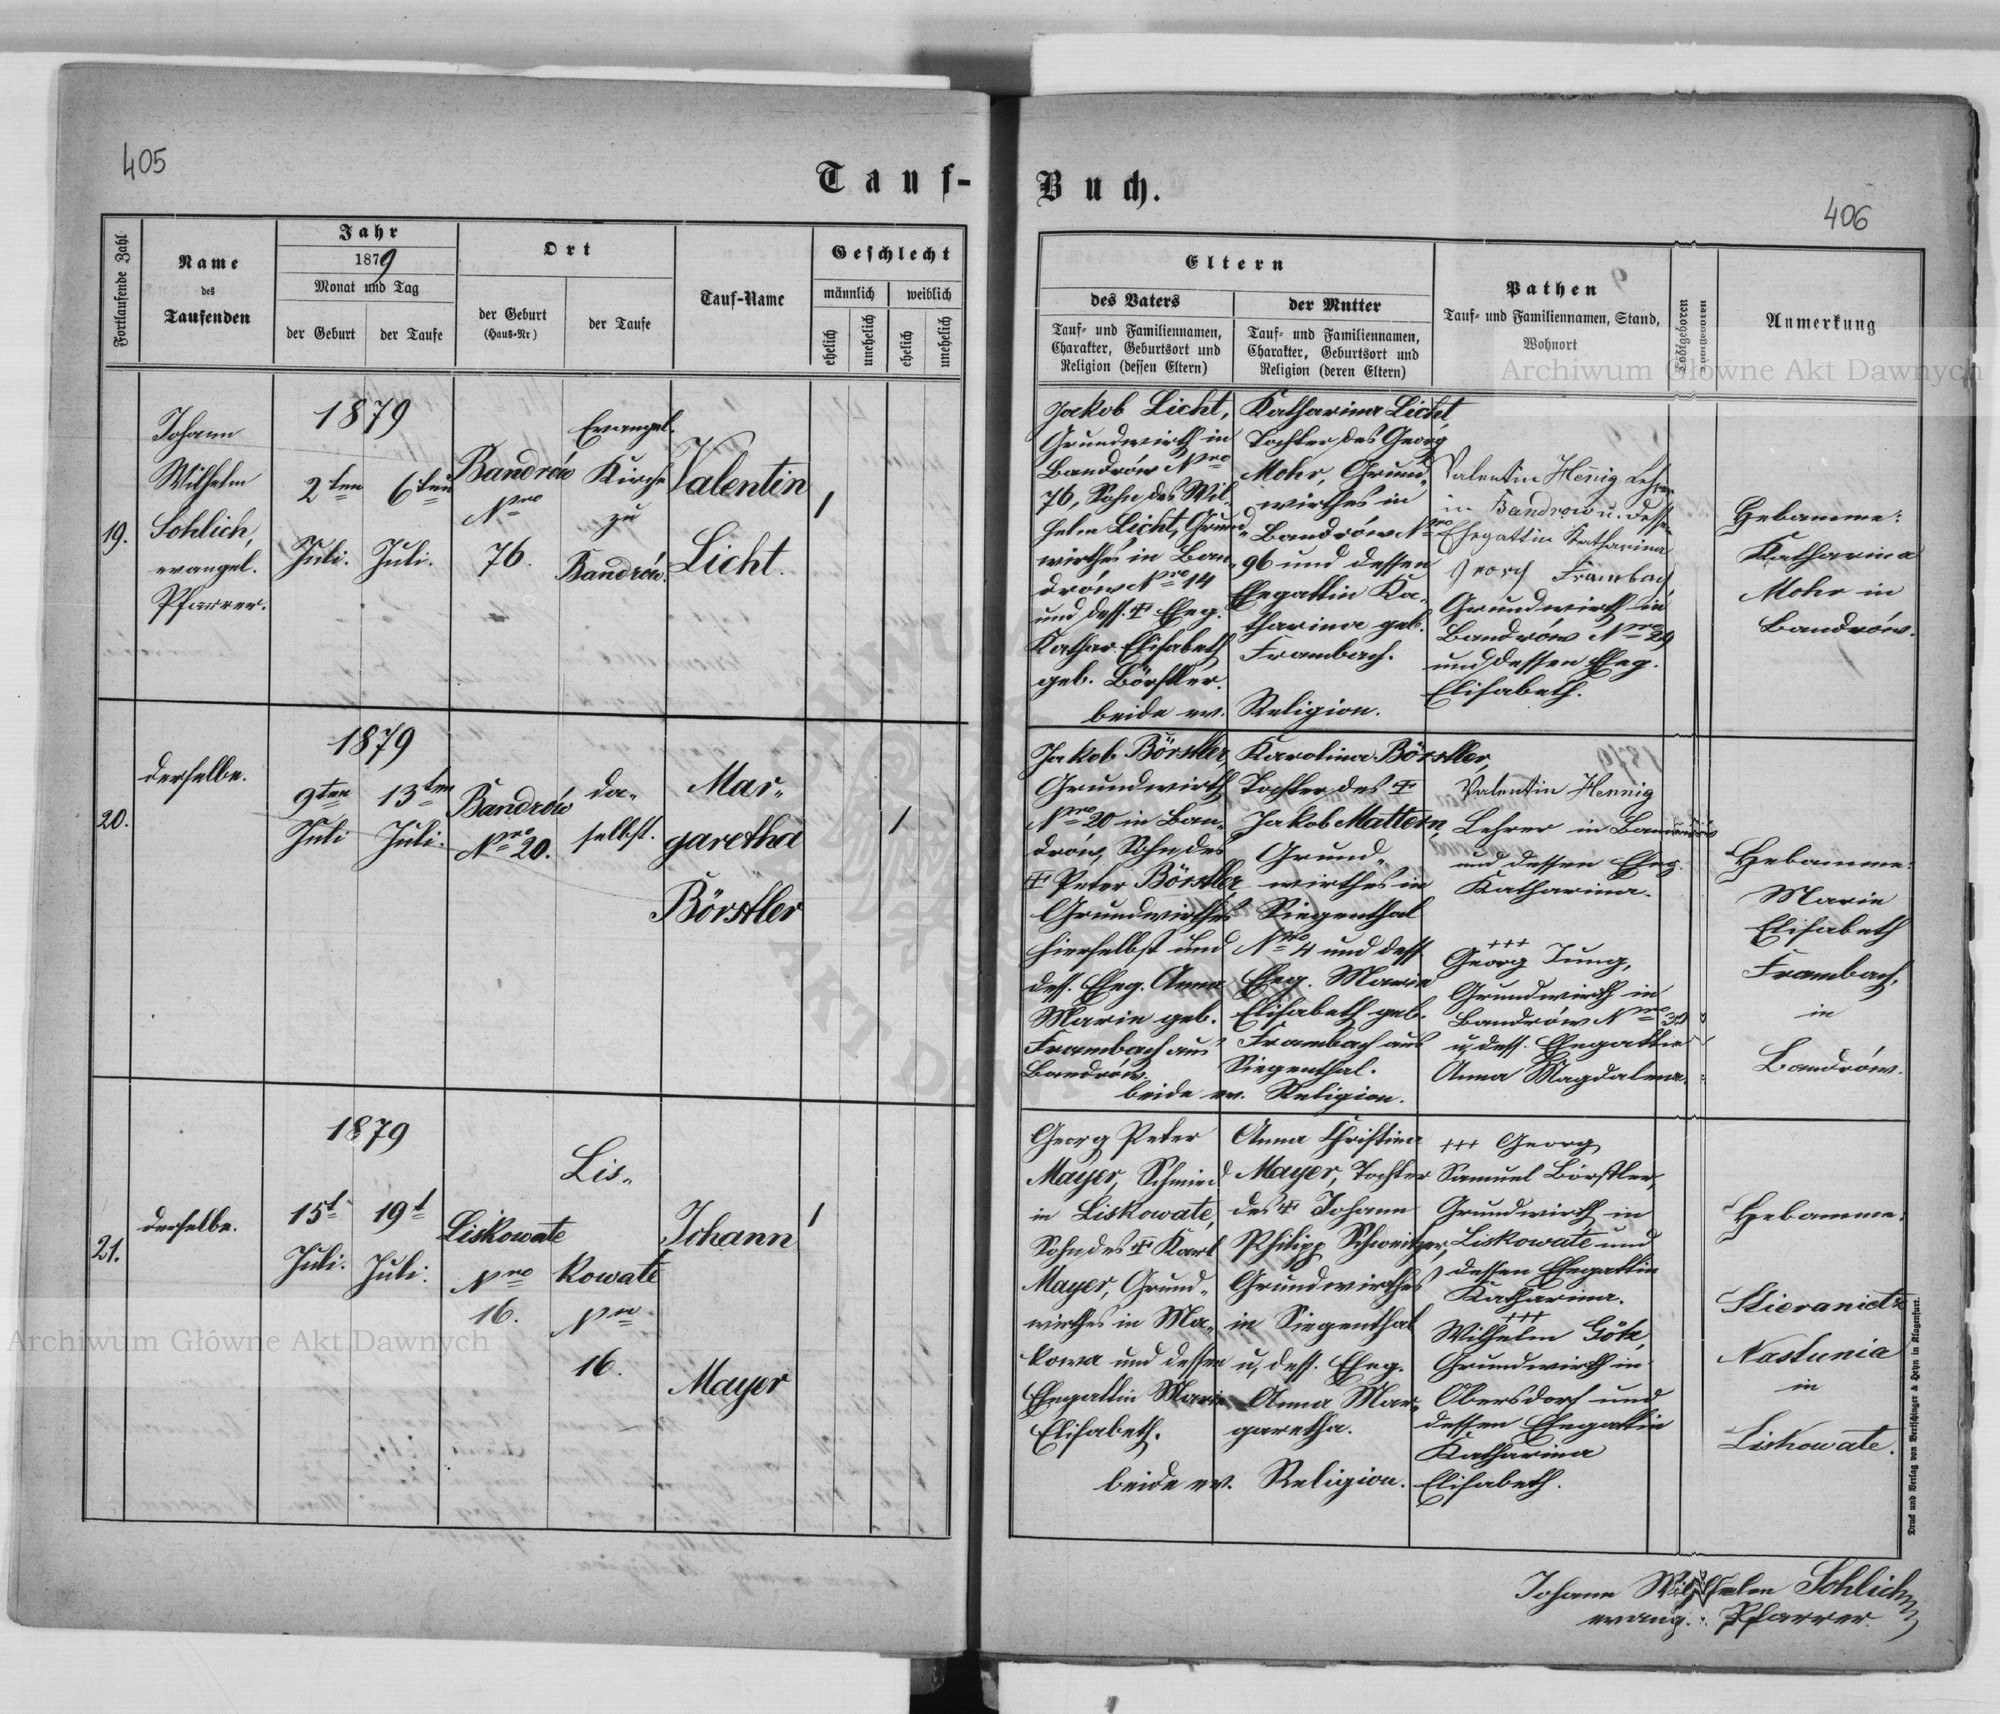 405
Tauf-
Buch.
406
Fortlaufende Zahl
Name
des
Taufenden
Jahr
1879
Monat und Tag
der Geburt
der Taufe
Ort
der Geburt
(Haus-Nr)
der Taufe
Tauf-Name
Geschlecht
männlich
weiblich
ehelich
unehelich
ehelich
unehelich
Eltern
des Vaters
Tauf- und Familiennamen,
Charakter, Geburtsort und
Religion (dessen Eltern)
der Mutter
Tauf- und Familiennamen,
Charakter, Geburtsort und
Religion (deren Eltern)
Pathen
Tauf- und Familiennamen, Stand,
Wohnort
Todtgeboren
Anmerkung
Archiwum Główne Akt Dawnych
19.
Johann
Wilhelm
Sohlich,
evangel.
Pfarrer.
1879
2ten
Juli.
6ten
Juli.
Bandrów
Nro
76.
Evangel.
Kirche
zu
Bandrów.
Valentin
Licht.
1
Jakob Licht,
Grundwirth in
Bandrów Nro
76, Sohn des Wil-
helm Licht, Grund-
wirthes in Ban-
drów Nro 14
und dess. † Eheg.
Kathar. Elisabeth
geb. Börstler.
beide ev. Religion.
Katharina Licht,
Tochter des Georg
Mohr, Grund-
wirthes in
Bandrów Nro
96 und dessen
Ehegattin Ka-
tharina geb.
Frambach.
Valentin Hennig Lehrer
in Bandrow u. dessen
Ehegattin Katharina
Georg Frambach
Grundwirth in
Bandrów Nro 29
und dessen Eheg.
Elisabeth.
Hebamme:
Katharina
Mohr in
Bandrów.
20.
derselbe.
1879
9ten
Juli
13ten
Juli.
Bandrów
Nro 20.
da-
selbst.
Mar-
garetha
Börstler
1
Jakob Börstler,
Grundwirth
Nro 20 in Ban-
drów, Sohn des
† Peter Börstler,
Grundwirthes
hierselbst und
dess. Eheg. Anna
Marie geb.
Frambach aus
Bandrów.
beide ev. Religion.
Karolina Börstler,
Tochter des †
Jakob Mattern,
Grund-
wirthes in
Siegenthal
Nro 4 und dess
Eheg. Marie
Elisabeth geb.
Frambach aus
Siegenthal.
Valentin Hennig
Lehrer in Bandrów
und dessen Eheg.
Katharina.
+++
Georg Jung,
Grundwirth in
Bandrów Nro
u. dess. Ehegattin
Anna Magdalena.
Hebamme:
Marie
Elisabeth
Frambach,
in
Bandrów.
21.
derselbe.
1879
15t
Juli.
19t
Juli.
Liskowate
Nro
16.
Lis-
kowate
Nro
16.
Johann
Mayer
1
Georg Peter
Mayer, Schmied
in Liskowate,
Sohn des † Karl
Mayer, Grund-
wirthes in Ma-
kowa und dessen
Ehegattin Marie
Elisabeth.
beide ev. Religion.
Anna Christina
Mayer, Tochter
des † Johann
Philipp Schweitzer,
Grundwirthes
in Siegenthal
u. dess. Eheg.
Anna Mar-
garetha.
+++ Georg
Samuel Börstler,
Grundwirth in
Liskowate und
dessen Ehegattin
Katharina.
+++
Wilhelm Götz,
Grundwirth in
Obersdorf und
dessen Ehegattin
Katharina
Elisabeth.
Hebamme:
Nastunia
in
Liskowate.
Archiwum Główne Akt Dawnych
Druck und Verlag von Bertschinger & Heyn in Klagenfurt.
Johann Wilhelm Sohlich
evang. Pfarrer.